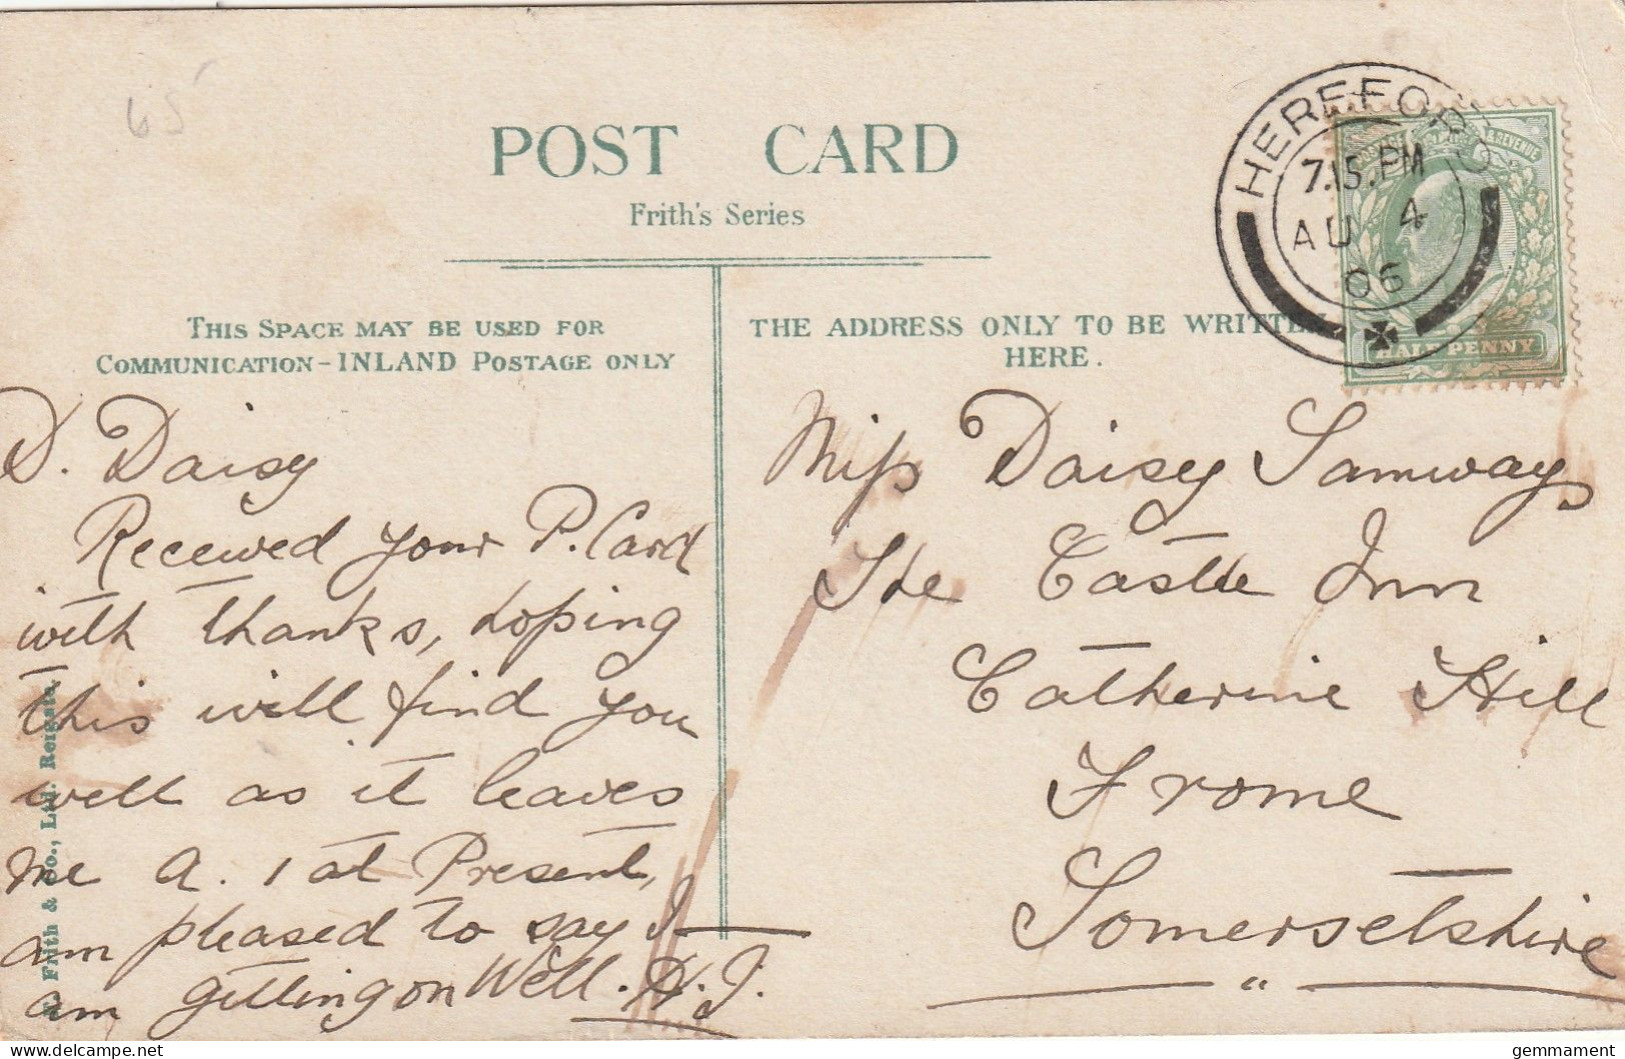 65
POST CARD
Frith's Series
HEREFORD
7.15.PM
AU 4
06
POSTAGE & REVENUE
HALF PENNY
THIS SPACE MAY BE USED FOR
COMMUNICATION-INLAND POSTAGE ONLY
THE ADDRESS ONLY TO BE WRITTEN
HERE.
D. Daisy
Received your P. Card
with thanks, hoping
this will find you
well as it leaves
me A. 1 at Present,
am pleased to say I
am getting on Well. H.J.
Miss Daisy Samways
The Castle Inn
Catherine Hill
Frome
Somersetshire
F. Frith & Co., Ltd. Reigate.
gemmament